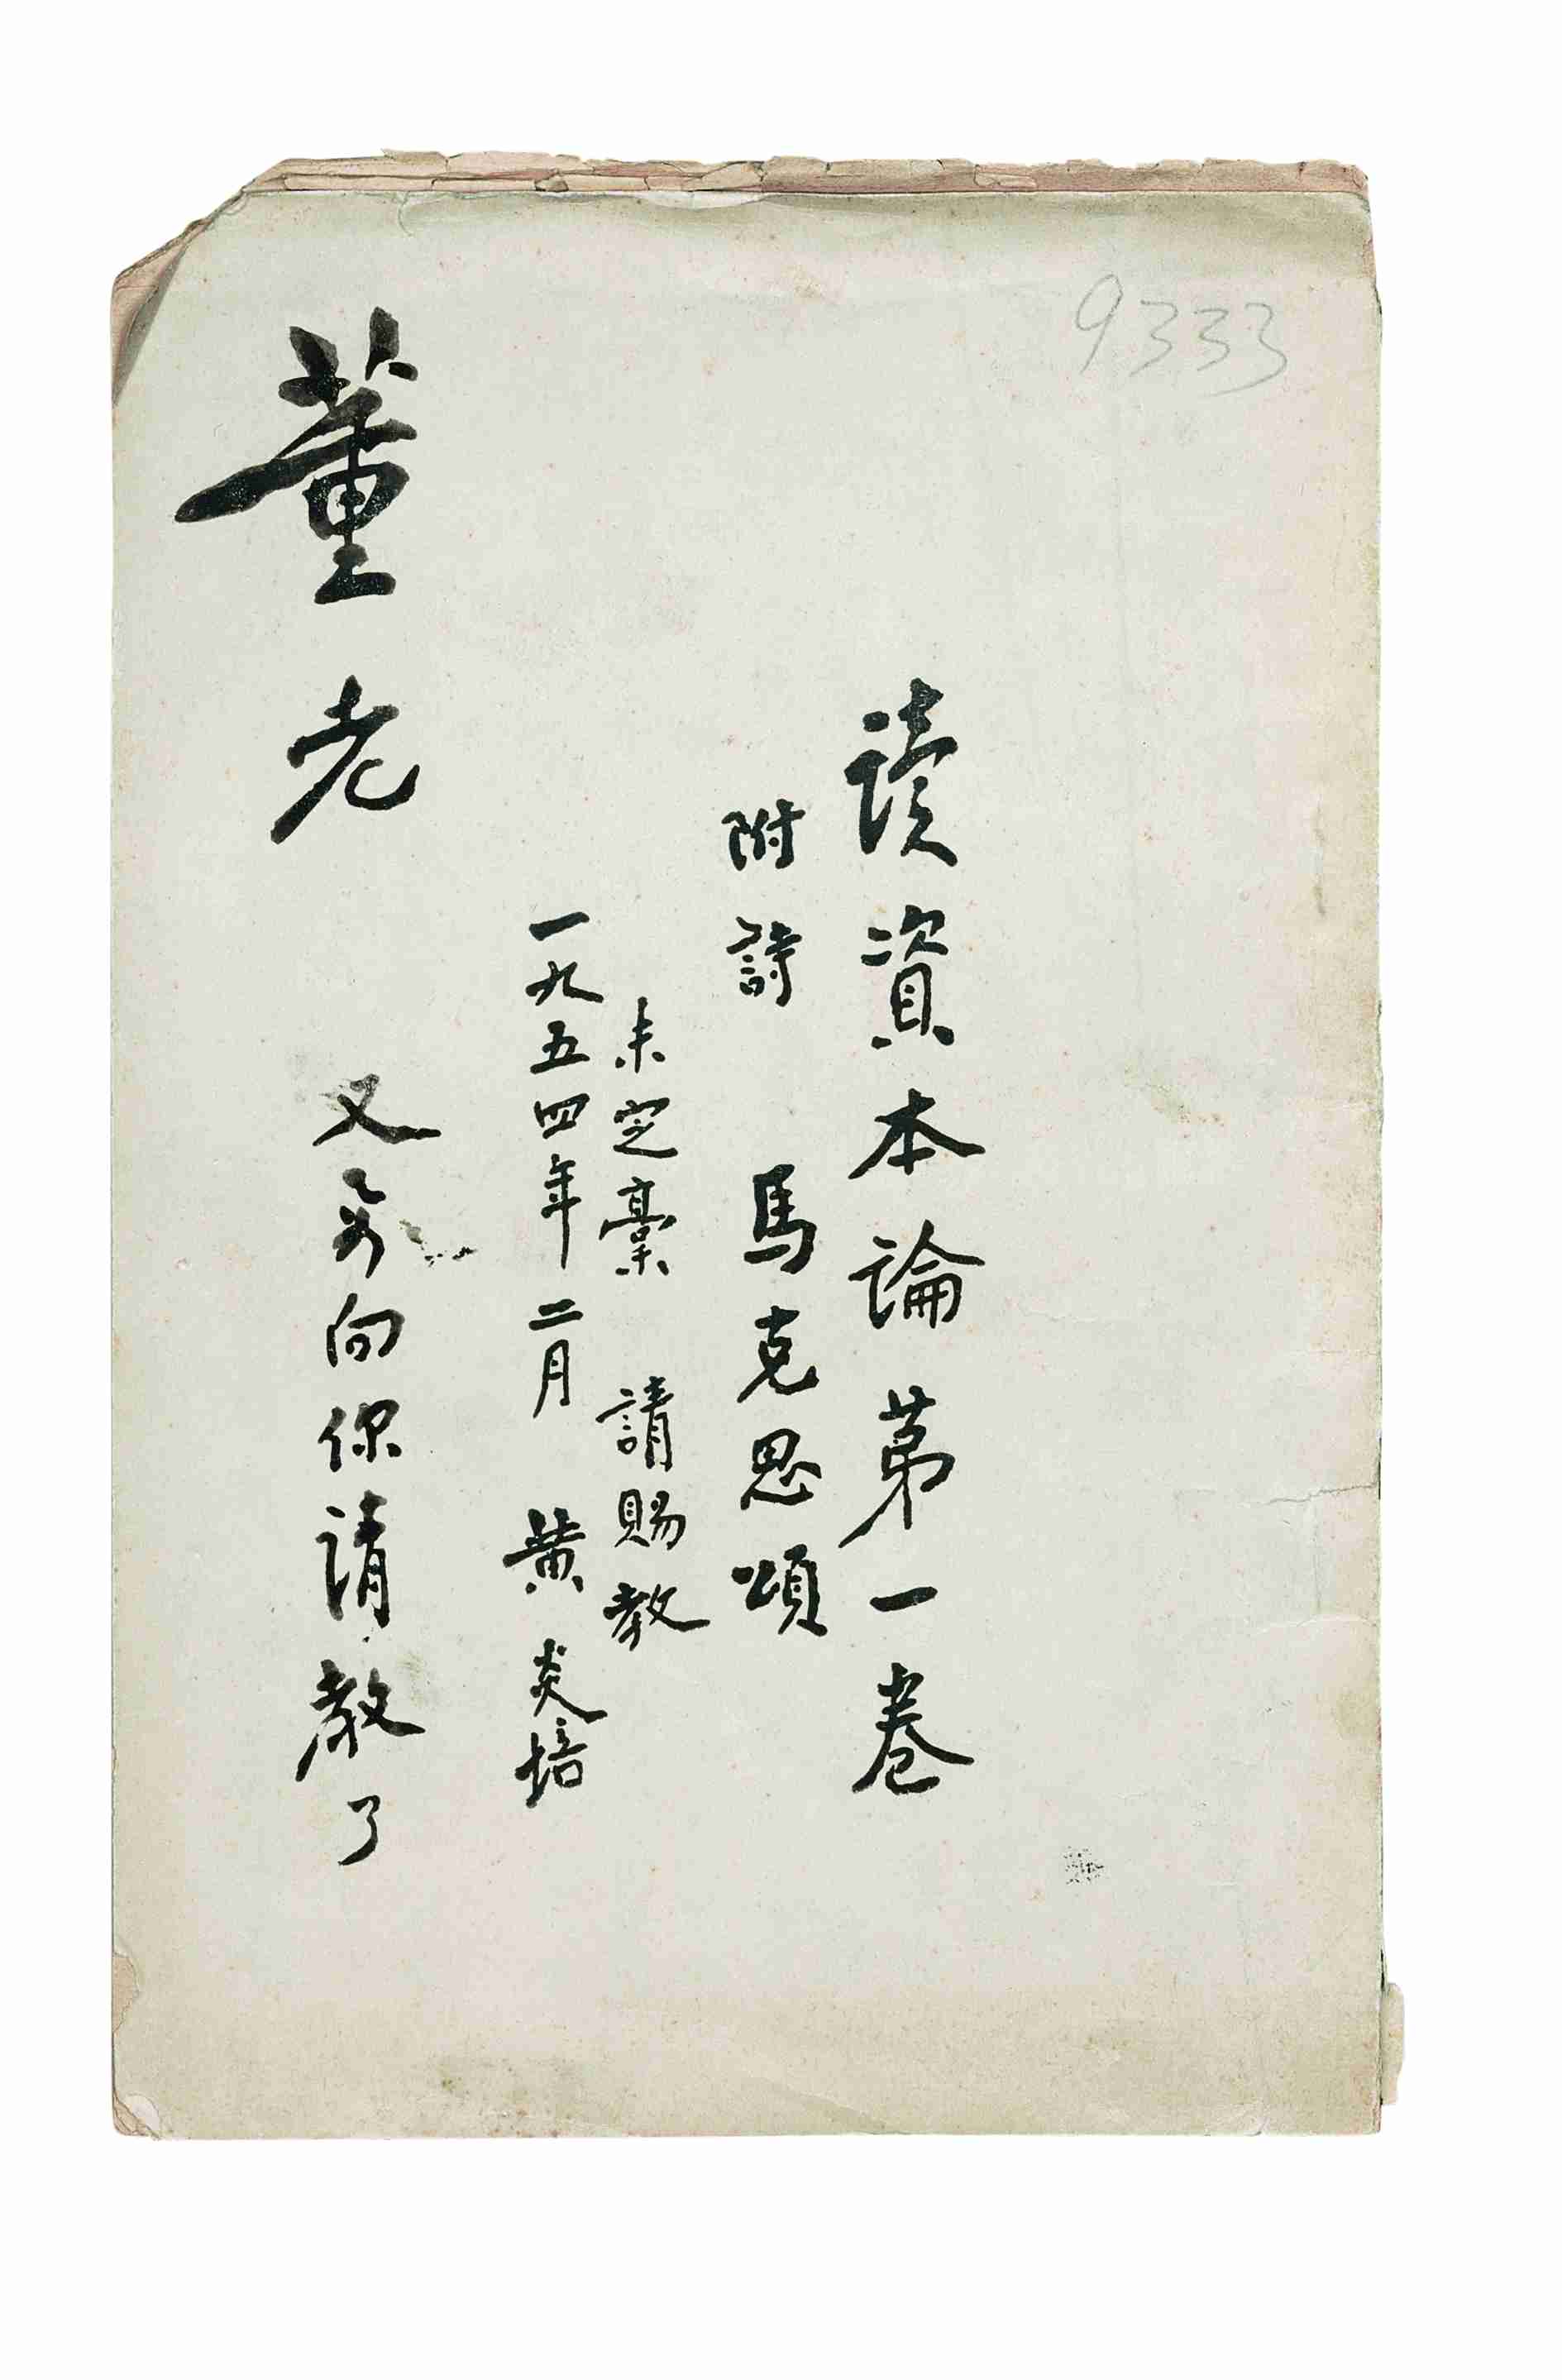 9333
讀資本論第一卷
附詩 馬克思頌
未定稾 請賜教
一九五四年二月 黃炎培
董老
又要向你請教了